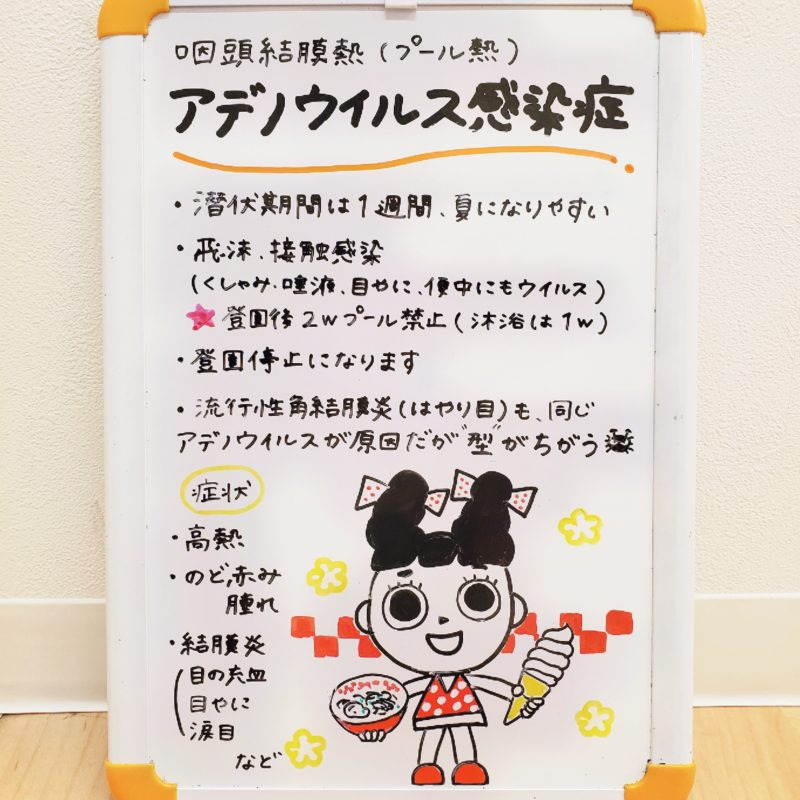 咽頭結膜熱(プール熱)
アデノウイルス感染症
・潜伏期間は1週間、夏になりやすい
・飛沫、接触感染
(くしゃみ・唾液、目やに、便中にもウイルス)
登園後2wプール禁止(沐浴は1w)
・登園停止になります
・流行性角結膜炎(はやり目)も、同じ
アデノウイルスが原因だが"型"がちがう
症状
・高熱
・のど赤み
腫れ
・結膜炎
目の充血
目やに
涙目
など